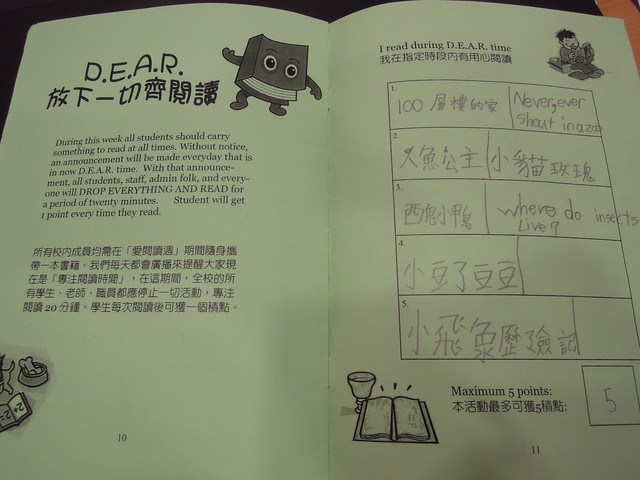 D.E.A.R.
放下一切齊閱讀
During this week all students should carry
something to read at all times. Without notice,
an announcement will be made everyday that is
in now D.E.A.R. time. With that announce-
ment, all students, staff, admin folk, and every-
one will DROP EVERYTHING AND READ for
a period of twenty minutes. Student will get
1 point every time they read.
所有校內成員均需在「愛閱讀週」期間隨身攜
帶一本書籍。我們每天都會廣播來提醒大家現
在是「專注閱讀時間」，在這期間，全校的所
有學生、老師、職員都應停止一切活動，專注
閱讀 20 分鐘。學生每次閱讀後可獲一個積點。
10
I read during D.E.A.R. time
我在指定時段內有用心閱讀
1.
100 層樓的家
Never, ever
shout in a zoo
2.
人魚公主
小貓玫瑰
3.
小鴨
where do insects
Live?
4.
小豆子豆豆
5.
小飛象歷險記
Maximum 5 points:
本活動最多可獲5積點:
5
11